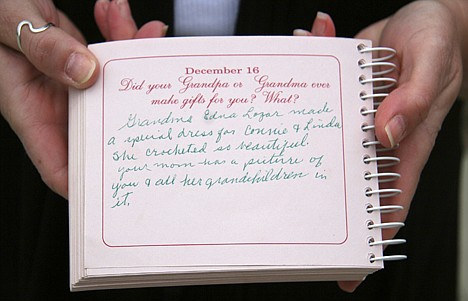 December 16
Did your Grandpa or Grandma ever
make gifts for you? What?
Grandma Edna Lozar made
a special dress for Connie & Linda
She crocheted so beautiful.
your mom has a picture of
you & all her grandchildren in
it.